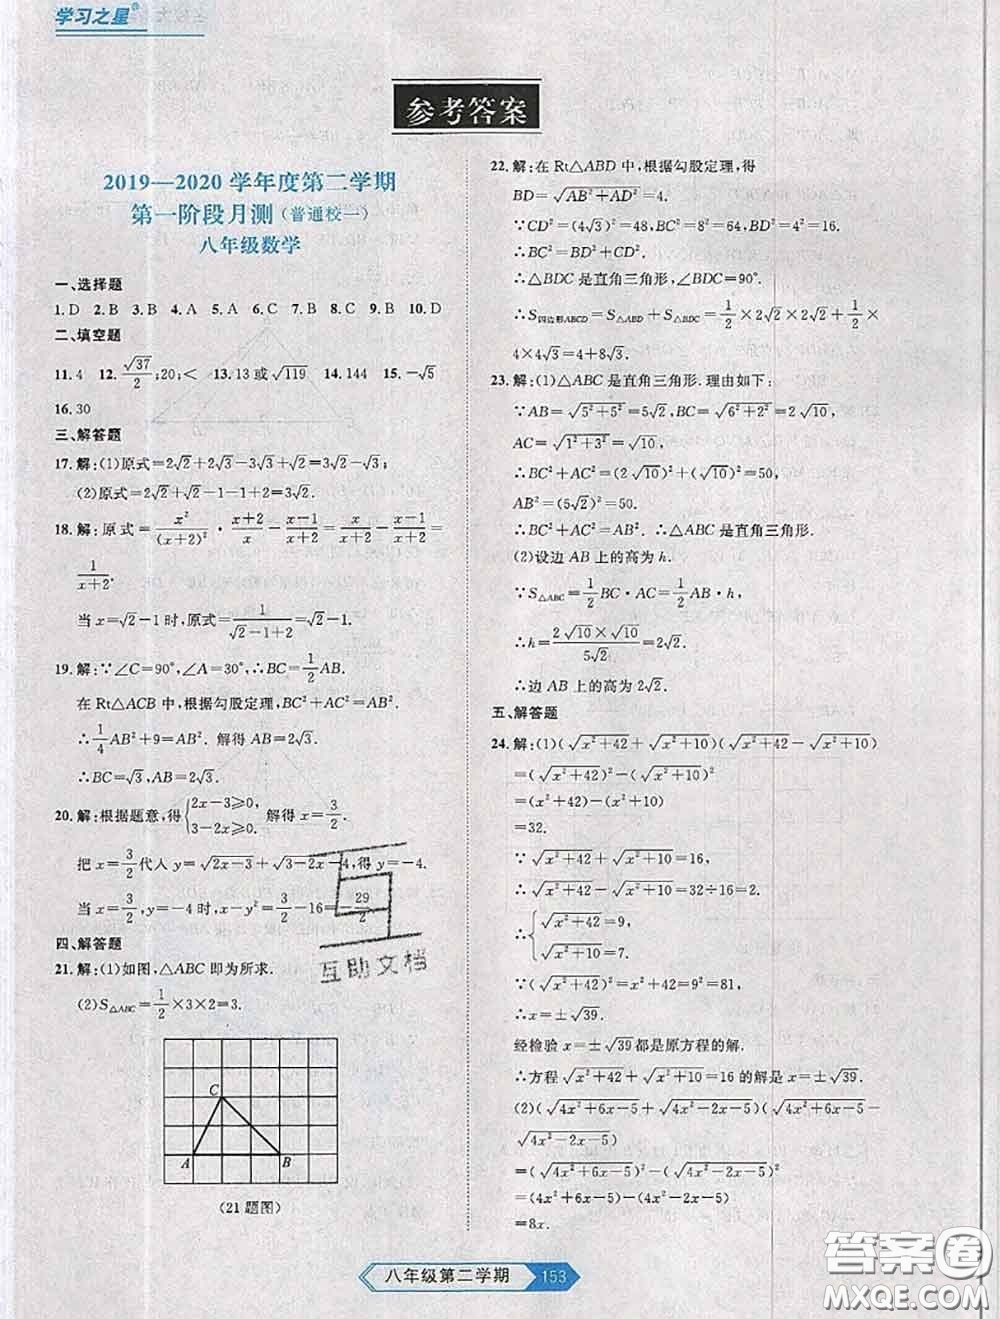 学习之星®
参考答案
2019—2020 学年度第二学期
第一阶段月测(普通校一)
八年级数学
一、选择题
1. D 2. B 3. B 4. A 5. A 6. C 7. B 8. C 9. B 10. D
二、填空题
11. 4 12. √37/2;20;< 13. 13 或√119 14. 144 15. -√5
16. 30
三、解答题
17. 解:(1)原式=2√2+2√3-3√3+√3/... 
(2)原式=2√2+√2-1-1+2=3√2.
18. 解:原式=x²/(x+2)²·(x+2)/x-(x-1)/(x+2)=x/(x+2)-(x-1)/(x+2)=
1/(x+2).
当 x=√2-1 时,原式=1/(√2-1+2)=√2-1.
19. 解:∵∠C=90°,∠A=30°,∴BC=1/2AB.
在 Rt△ACB 中,根据勾股定理,BC²+AC²=AB².
∴1/4AB²+9=AB². 解得 AB=2√3.
∴BC=√3,AB=2√3.
20. 解:根据题意,得{2x-3≥0, 3-2x≥0. 解得 x=3/2.
把 x=3/2代入 y=√2x-3+√3-2x-4,得 y=-4.
当 x=3/2,y=-4 时,x-y²=3/2-16=-29/2.
四、解答题
21. 解:(1)如图,△ABC 即为所求.
(2)S△ABC=1/2×3×2=3.
C
A
B
(21 题图)
22. 解:在 Rt△ABD 中,根据勾股定理,得
BD=√AB²+AD²=4.
∵CD²=(4√3)²=48,BC²=8²=64,BD²=4²=16.
∴BC²=BD²+CD².
∴△BDC 是直角三角形,∠BDC=90°.
∴S四边形ABCD=S△ABD+S△BDC=1/2×2√2×2√2+1/2×
4×4√3=4+8√3.
23. 解:(1)△ABC 是直角三角形. 理由如下:
∵AB=√5²+5²=5√2,BC=√6²+2²=2√10,
AC=√1²+3²=√10.
∴BC²+AC²=(2√10)²+(√10)²=50,
AB²=(5√2)²=50.
∴BC²+AC²=AB². ∴△ABC 是直角三角形.
(2)设边 AB 上的高为 h.
∵S△ABC=1/2BC·AC=1/2AB·h,
∴h=2√10×√10/5√2=2√2.
∴边 AB 上的高为 2√2.
五、解答题
24. 解:(1)(√x²+42+√x²+10)(√x²+42-√x²+10)
=(√x²+42)²-(√x²+10)²
=(x²+42)-(x²+10)
=32.
∵√x²+42+√x²+10=16,
∴√x²+42-√x²+10=32÷16=2.
∴{√x²+42=9, √x²+10=7.
∵(√x²+42)²=x²+42=9²=81,
∴x=±√39.
经检验 x=±√39都是原方程的解.
∴方程√x²+42+√x²+10=16 的解是 x=±√39.
(2)(√4x²+6x-5+√4x²-2x-5)(√4x²+6x-5-
√4x²-2x-5)
=(√4x²+6x-5)²-(√4x²-2x-5)²
=(4x²+6x-5)-(4x²-2x-5)
=8x.
互助文档
八年级第二学期 153
答案圈
MXQE.COM